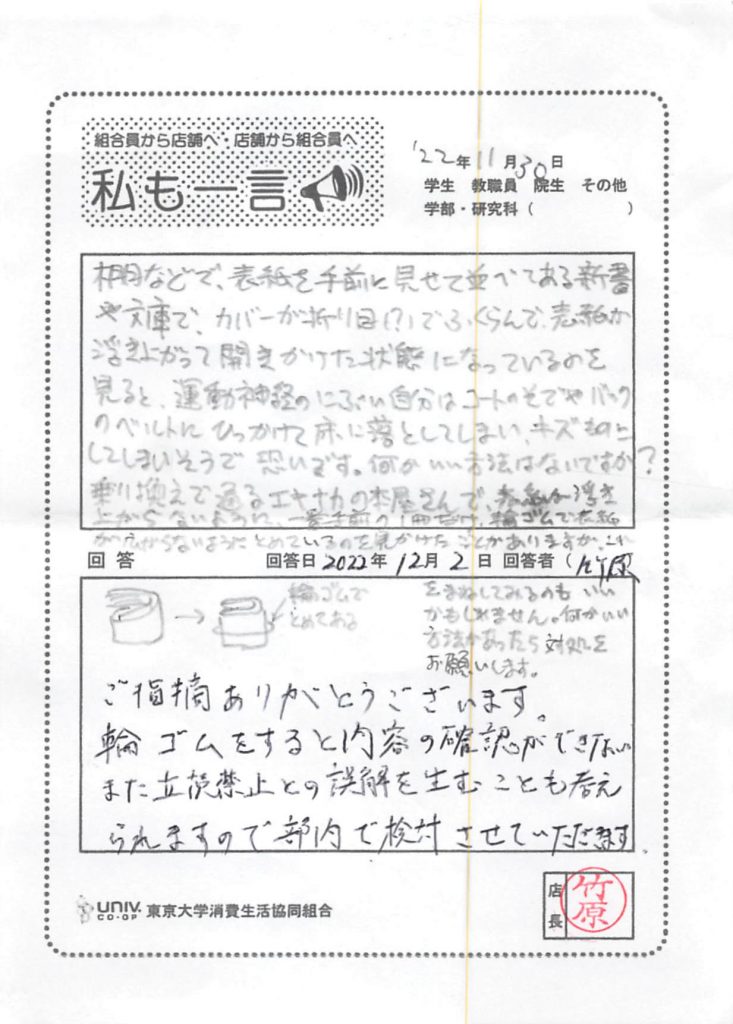 組合員から店舗へ・店舗から組合員へ
私も一言
'22年11月30日
学生 教職員 院生 その他
学部・研究科( )
棚などで、表紙を手前に見せて並べてある新書
や文庫で、カバーが折り目(?)でふくらんで、表紙が
浮き上がって開きかけた状態になっているのを
見ると、運動神経のにぶい自分はコートのそでやバック
のベルトにひっかけて床に落としてしまい、キズものに
してしまいそうで恐いです。何かいい方法はないですか?
乗り換えで通るエキナカの本屋さんで、表紙が浮き
上がらないように、一番手前の1冊だけ、輪ゴムで表紙
がふくらないようにとめているのを見かけたことがありますが、これ
回答 回答日2022年12月2日 回答者(竹原
輪ゴムで
とめてある
をまねしてみるのもいい
かもしれません。何かいい
方法があったら対処を
お願いします。
ご指摘ありがとうございます。
輪ゴムをすると内容の確認ができない
また立読禁止との誤解を生むことも考え
られますので部内で検討させていただきます。
UNIV. CO-OP 東京大学消費生活協同組合
店長 竹原